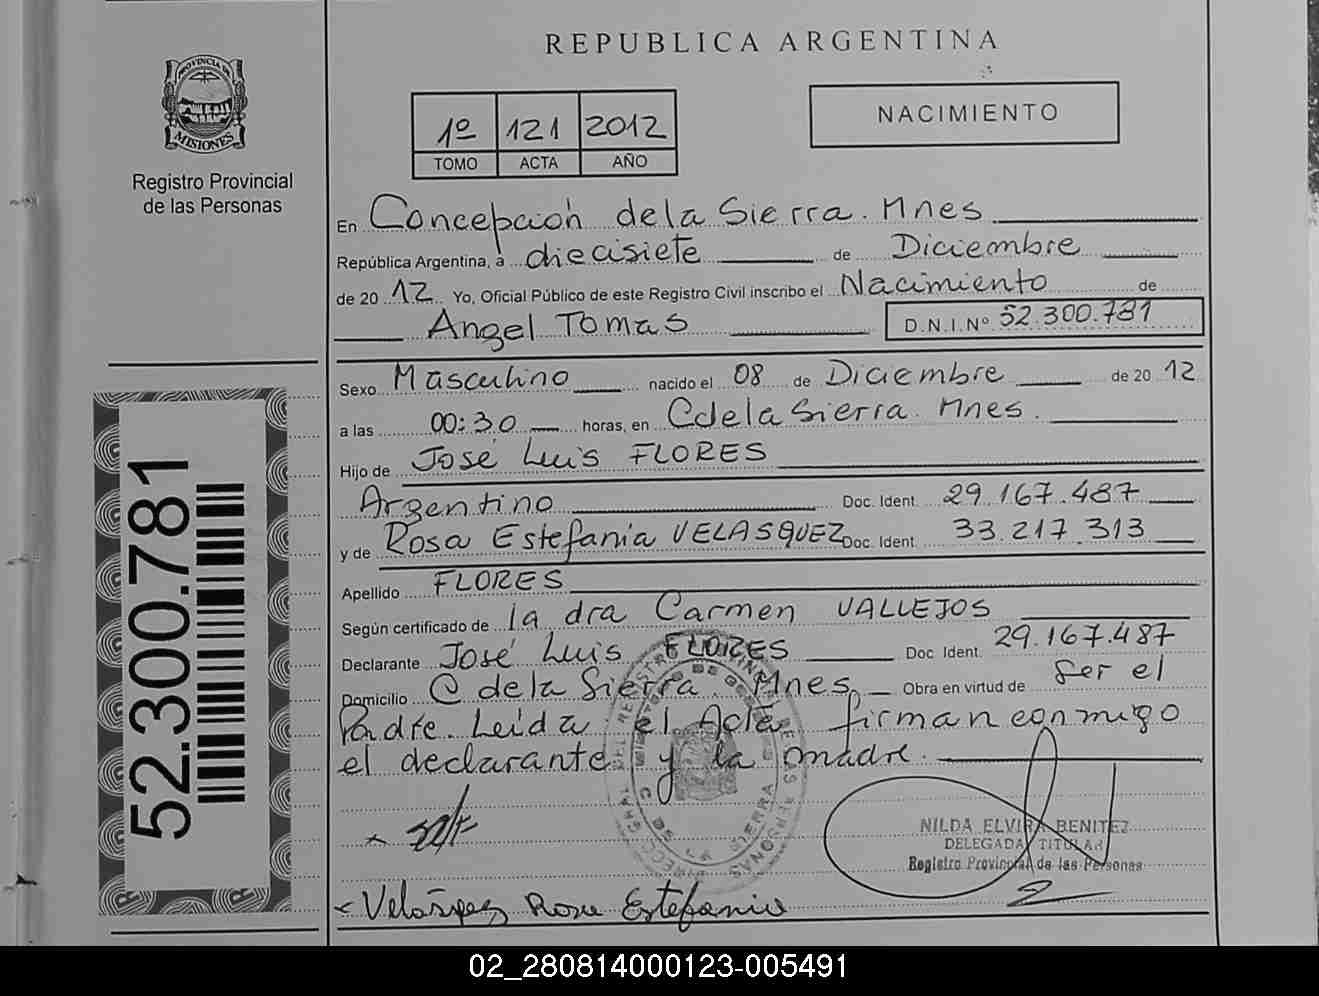 REPUBLICA ARGENTINA
PROVINCIA DE
MISIONES
Registro Provincial
de las Personas
1º 121 2012
TOMO ACTA AÑO
NACIMIENTO
En Concepción de la Sierra. Mnes
República Argentina, a diecisiete de Diciembre
de 20 12 Yo, Oficial Público de este Registro Civil inscribo el Nacimiento de
Angel Tomas D.N.I.Nº 52.300.781
Sexo Masculino nacido el 08 de Diciembre de 20 12
a las 00:30 horas, en C de la Sierra. Mnes.
Hijo de José Luis FLORES
Argentino Doc. Ident. 29.167.487
y de Rosa Estefanía VELASQUEZ Doc. Ident. 33.217.313
Apellido FLORES
Según certificado de la dra Carmen VALLEJOS
Declarante José Luis FLORES Doc. Ident. 29.167.487
Domicilio C de la Sierra. Mnes. Obra en virtud de ser el
Padre. Leida el Acta firman conmigo
el declarante y la madre.
NILDA ELVIRA BENITEZ
DELEGADA TITULAR
Registro Provincial de las Personas
Velásquez Rosa Estefania
52.300.781
02_280814000123-005491